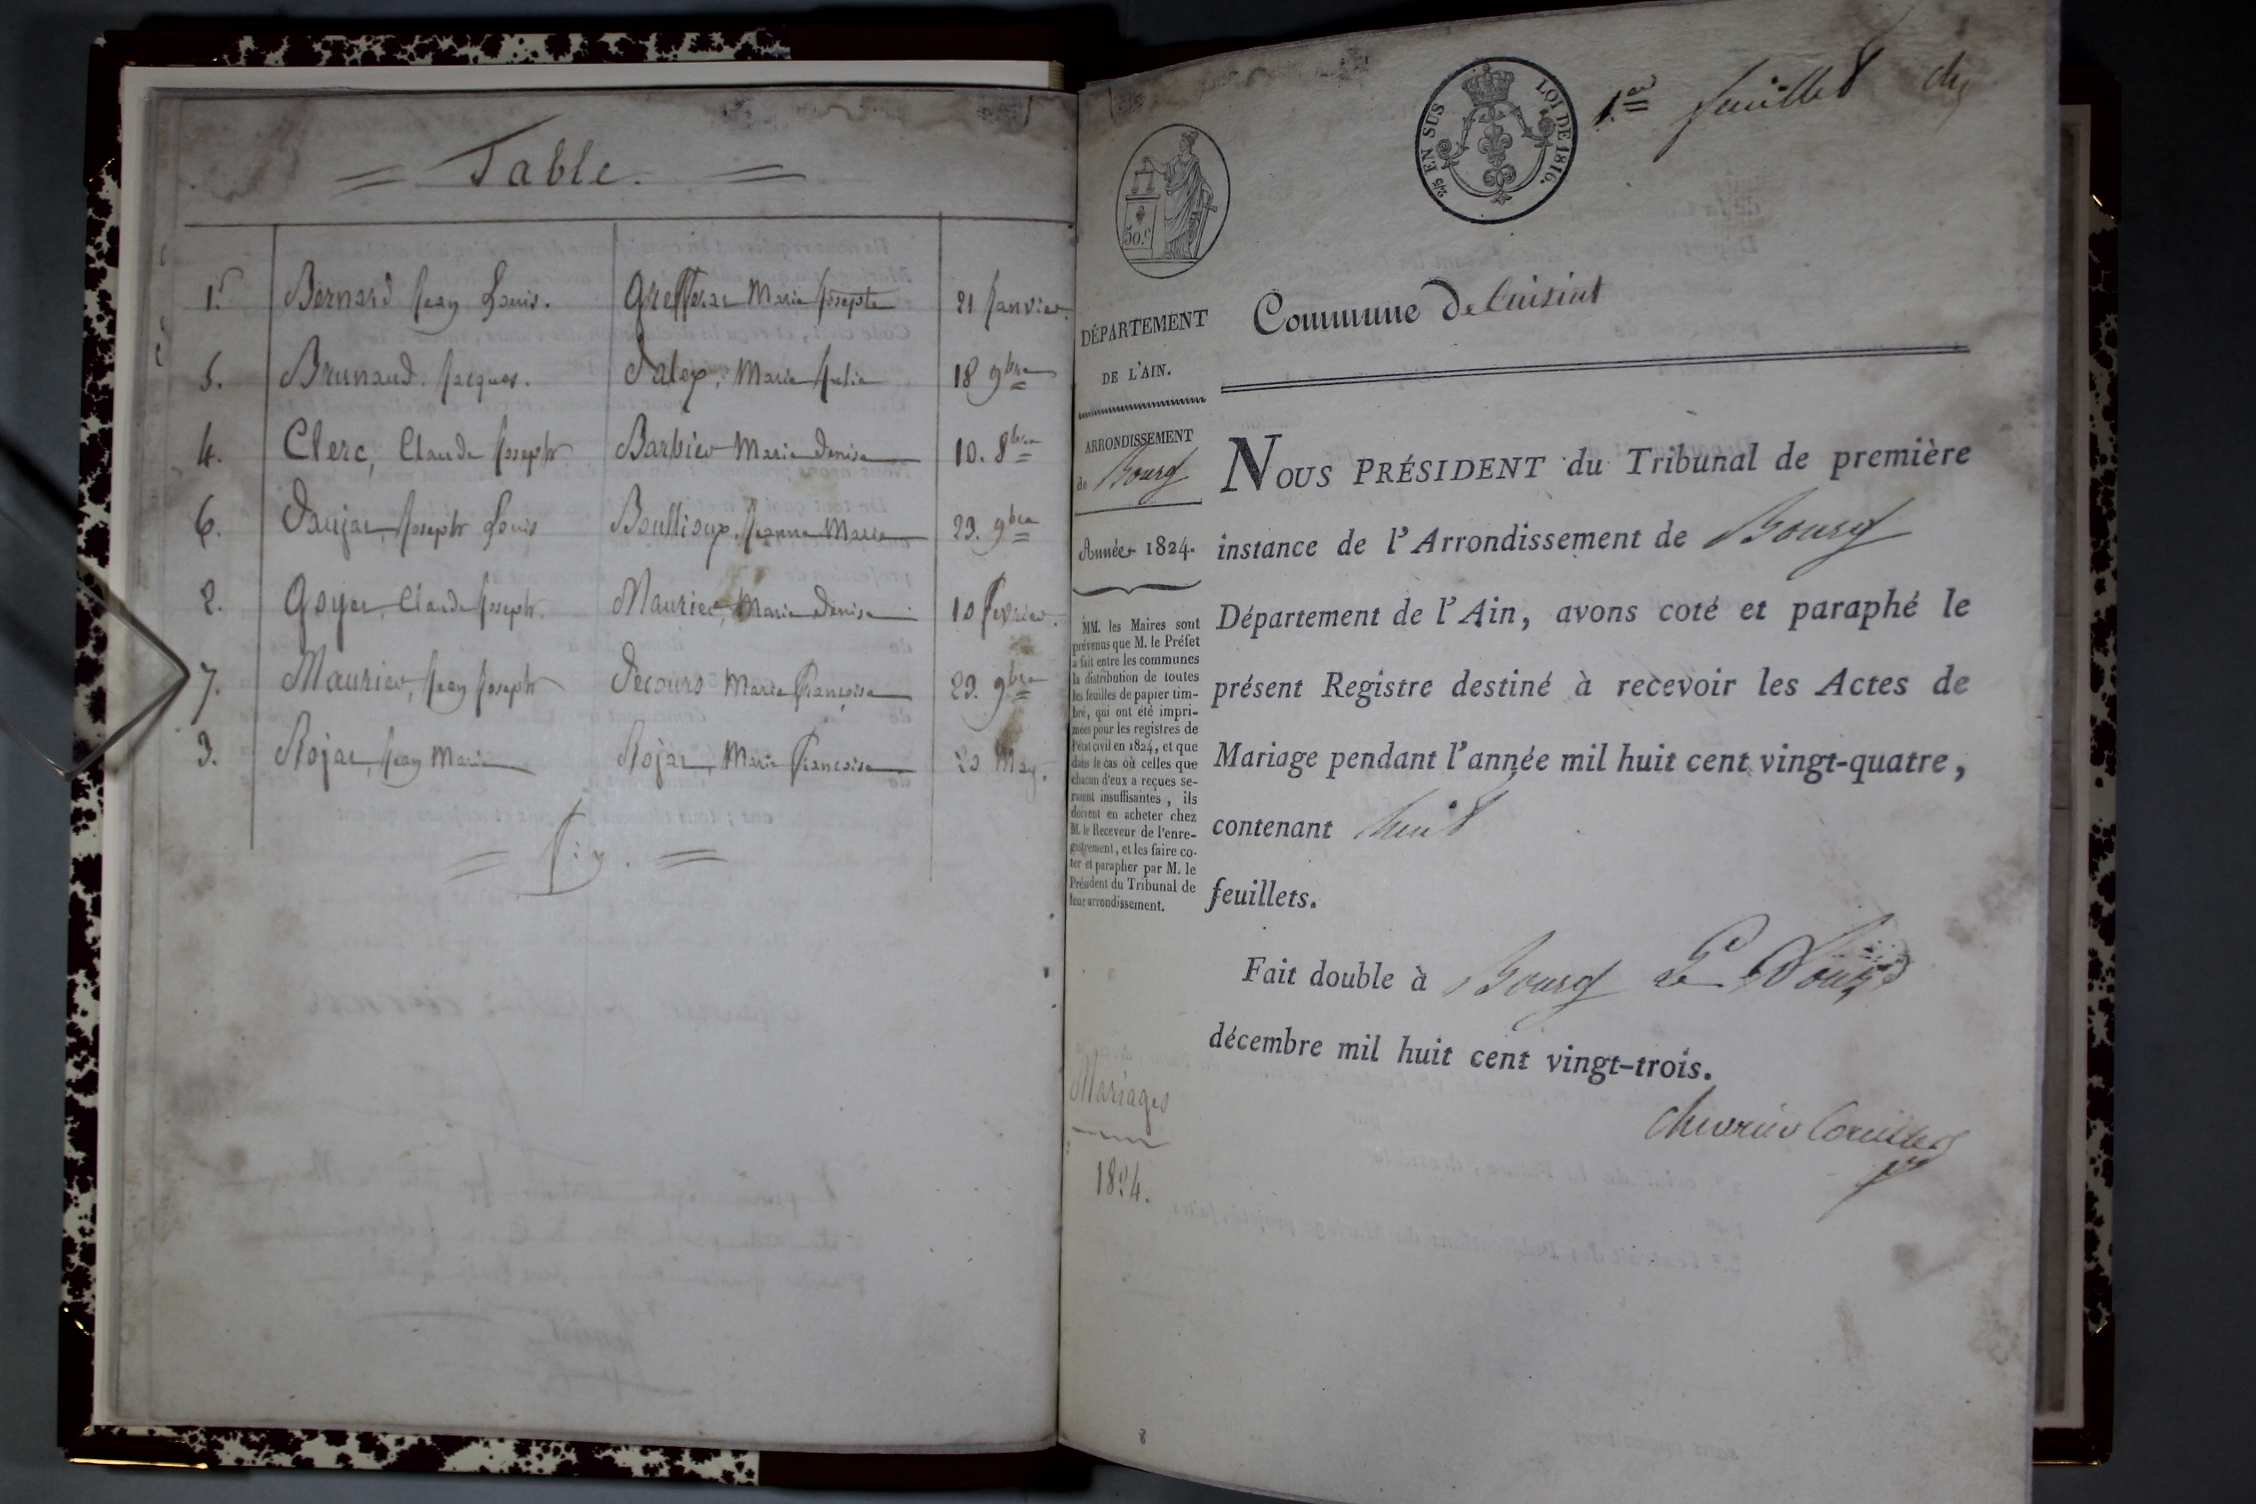 = Table. =
1.r Bernard Jean Louis. Greffoz Marie Josephte 21 Janvier.
5. Brunaud. Jacques. Marie Julie 18 9bre
4. Clerc, Claude Joseph Barbier Marie Denise 10. 8bre
6. Daujat, Joseph Louis Boullioux, Jeanne Marie 23. 9bre
2. Goyer, Claude Joseph. Maurier, Marie Denise 10 fevrier.
7. Maurier, Jean Joseph Decours Marie Françoise 23. 9bre
3. Rojat, Jean Marie Rojat, Marie Françoise 20 May.
= Fin. =
1er feuillet
2/5 EN SUS LOI DE 1816.
50.c
DÉPARTEMENT
DE L'AIN.
ARRONDISSEMENT
de Bourg
Année 1824.
MM. les Maires sont
prévenus que M. le Préfet
a fait entre les communes
la distribution de toutes
les feuilles de papier tim-
bré, qui ont été impri-
mées pour les registres de
l'état civil en 1824, et que
dans le cas où celles que
chacun d'eux a reçues se-
raient insuffisantes, ils
doivent en acheter chez
M. le Receveur de l'enre-
gistrement, et les faire co-
ter et parapher par M. le
Président du Tribunal de
leur arrondissement.
Mariages
1824.
Commune De Cuisiat
NOUS PRÉSIDENT du Tribunal de première
instance de l'Arrondissement de Bourg
Département de l'Ain, avons coté et paraphé le
présent Registre destiné à recevoir les Actes de
Mariage pendant l'année mil huit cent vingt-quatre,
contenant huit
feuillets.
Fait double à Bourg Le Douze
décembre mil huit cent vingt-trois.
Chevrier Corcelles
8